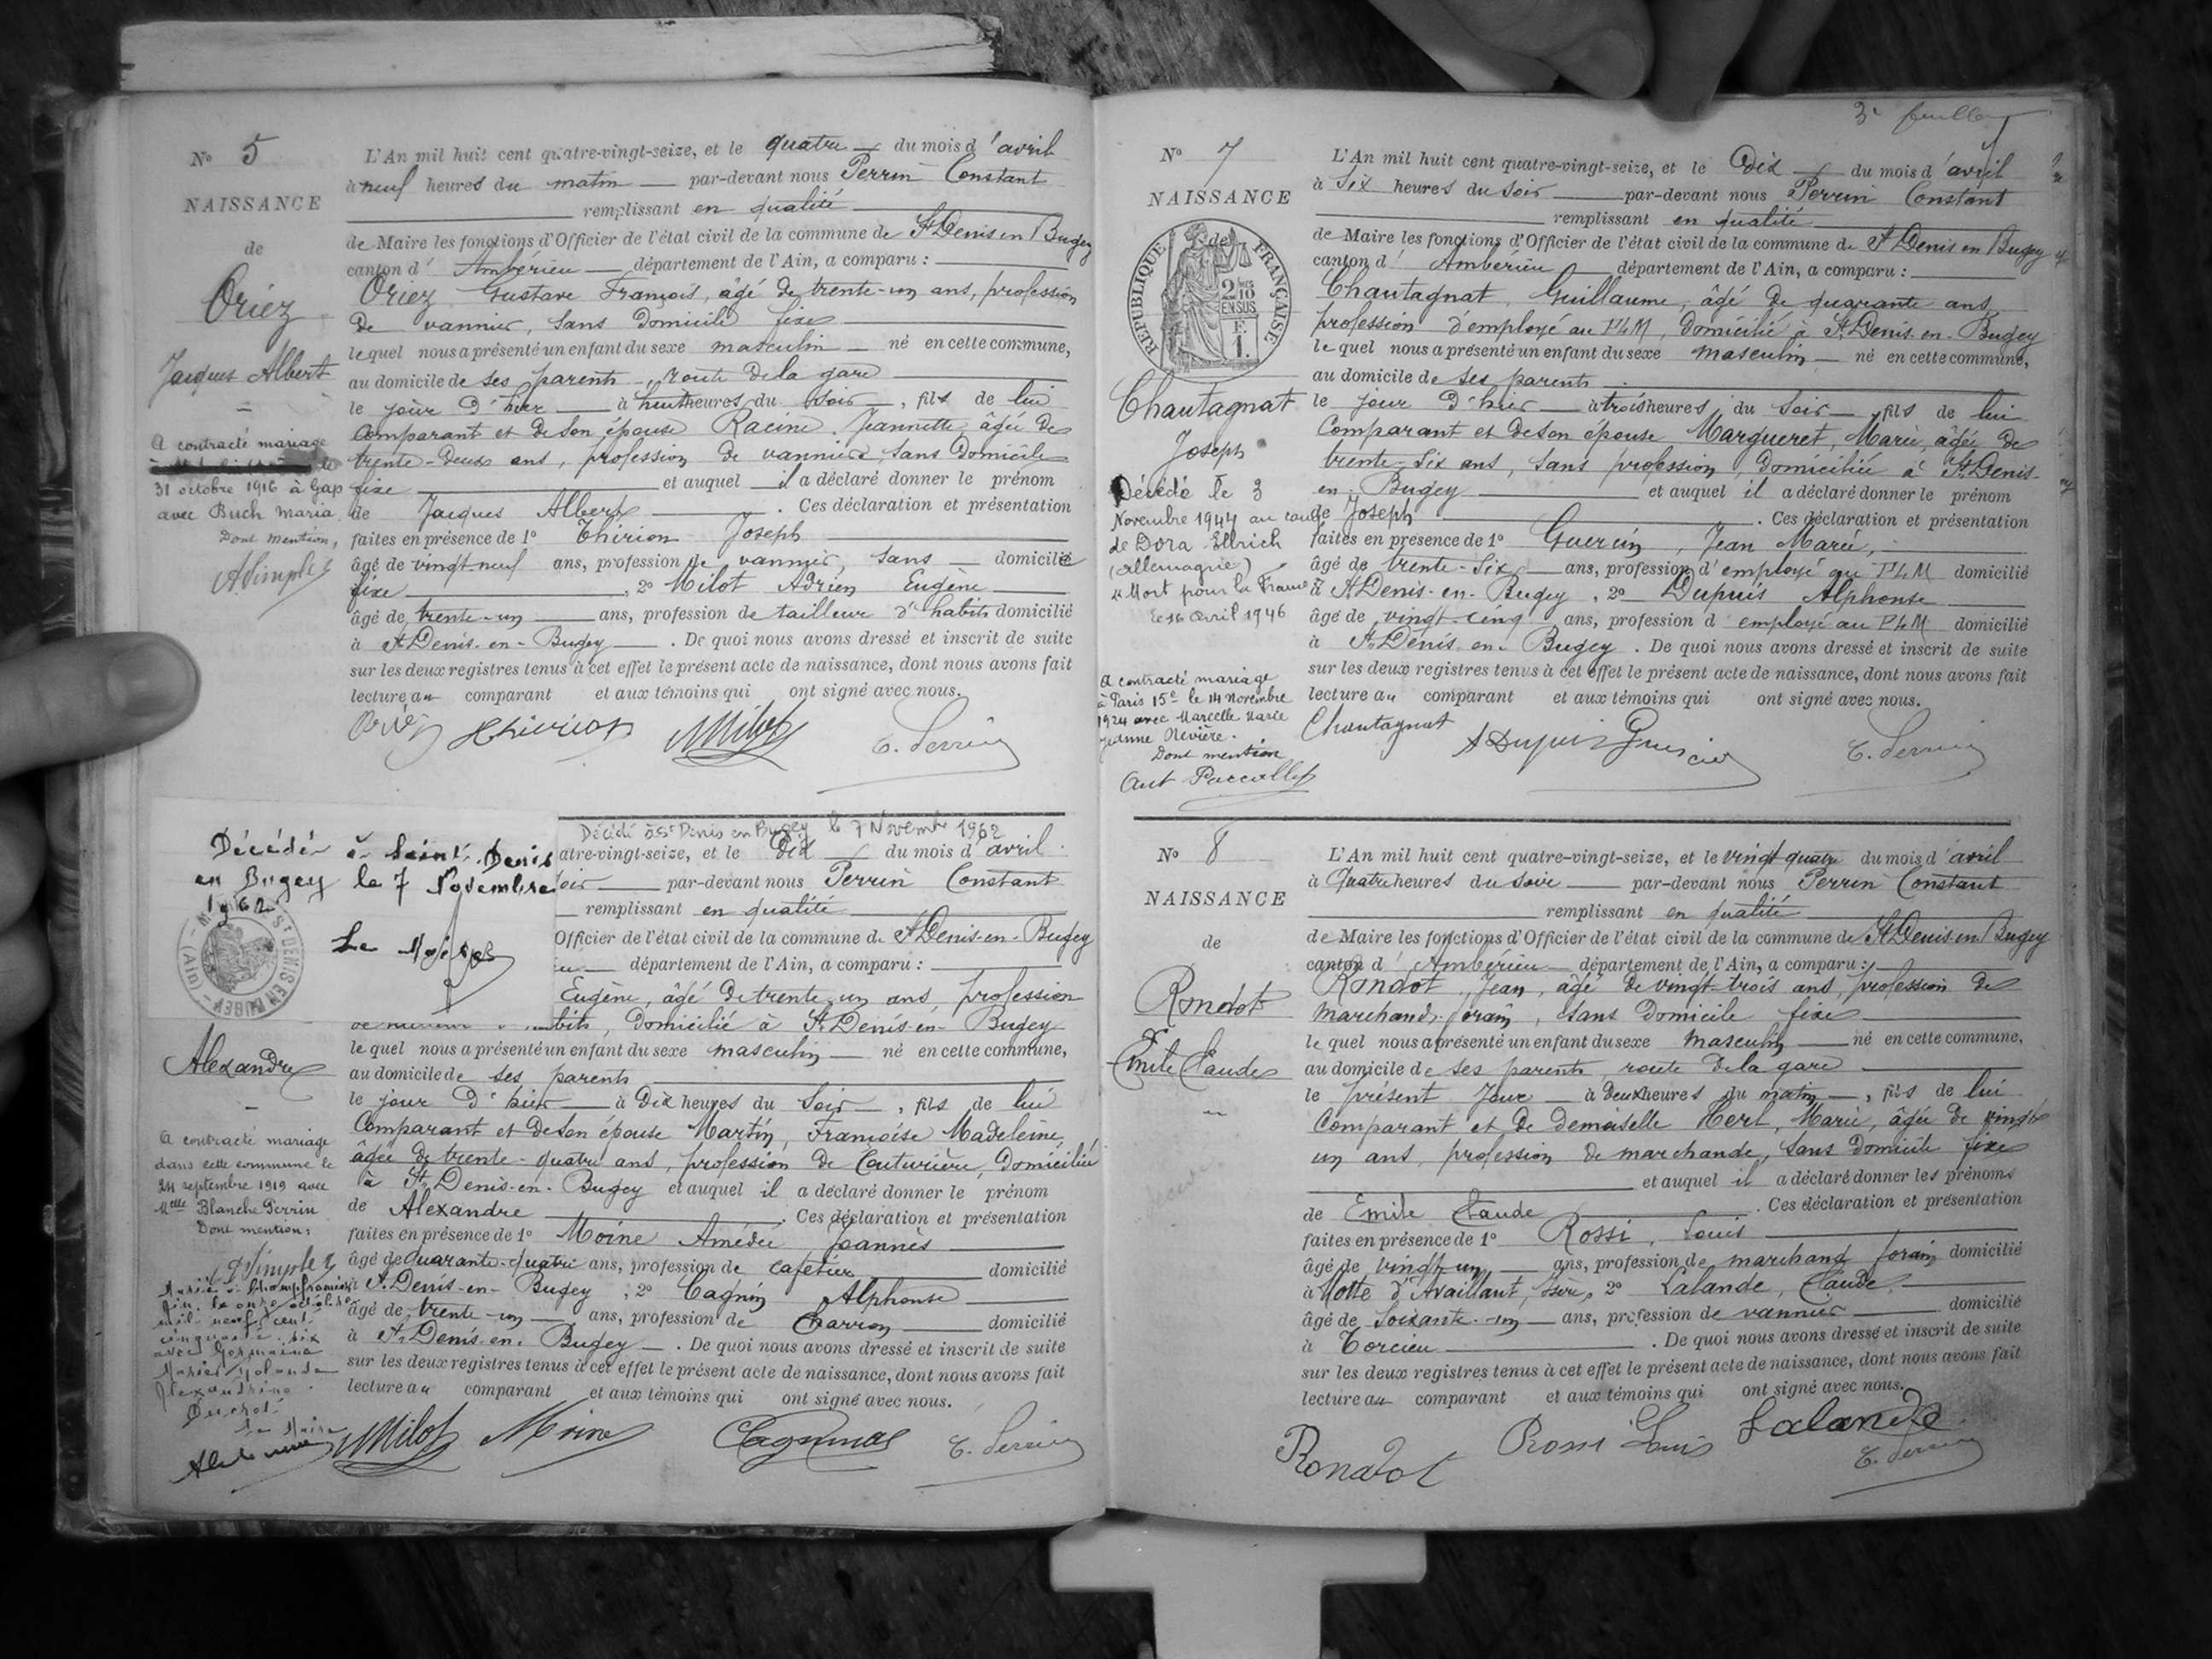 N° 5
NAISSANCE
de
Oriez
Jacques Albert
A contracté mariage
31 octobre 1916 à Gap
avec Buch Maria
Dont mention,
L'An mil huit cent quatre-vingt-seize, et le quatre du mois d'avril
à neuf heures du matin par-devant nous Perrin Constant
remplissant en qualité
de Maire les fonctions d'Officier de l'état civil de la commune de St Denis en Bugey
canton d' Ambérieu département de l'Ain, a comparu :
Oriez Gustave François, âgé de trente-un ans, profession
de vannier, sans domicile fixe
lequel nous a présenté un enfant du sexe masculin né en cette commune,
au domicile de ses parents, route de la gare
le jour d'hier à huit heures du soir, fils de lui
comparant et de son épouse Racine Jeannette, âgée de
trente-deux ans, profession de vannière, sans domicile
fixe et auquel il a déclaré donner le prénom
de Jacques Albert. Ces déclaration et présentation
faites en présence de 1° Thirion Joseph
âgé de vingt neuf ans, profession de vannier, sans domicilié
fixe, 2° Milot Adrien Eugène
âgé de trente-un ans, profession de tailleur d'habits domicilié
à St Denis-en-Bugey. De quoi nous avons dressé et inscrit de suite
sur les deux registres tenus à cet effet le présent acte de naissance, dont nous avons fait
lecture au comparant et aux témoins qui ont signé avec nous.
Oriez Thirion Milot C. Perrin
Décédé à Saint-Denis
en Bugey le 7 Novembre
1962
Le Maire
St DENIS EN BUGEY (Ain)
Alexandre
A contracté mariage
dans cette commune le
24 septembre 1919 avec
Melle Blanche Perrin
Dont mention:
Marié à Champfromier
Ain, le onze octobre
mil neuf cent
cinquante six
avec Germaine
Marie Yolande
Alexandrine
Duchol
Le Maire
Décédé à St Denis en Bugey le 7 Novembre 1962
atre-vingt-seize, et le dix du mois d'avril
soir par-devant nous Perrin Constant
remplissant en qualité
Officier de l'état civil de la commune de St Denis-en-Bugey
département de l'Ain, a comparu :
Eugène, âgé de trente-un ans, profession
bits, domicilié à St Denis-en-Bugey
lequel nous a présenté un enfant du sexe masculin né en cette commune,
au domicile de ses parents
le jour d'hier à dix heures du soir, fils de lui
comparant et de son épouse Martin, Françoise Madeleine,
âgée de trente-quatre ans, profession de couturière, domiciliée
à St Denis-en-Bugey et auquel il a déclaré donner le prénom
de Alexandre. Ces déclaration et présentation
faites en présence de 1° Moine Amédée Joannès
âgé de quarante-quatre ans, profession de cafetier domicilié
à St Denis-en-Bugey, 2° Cagnin Alphonse
âgé de trente-un ans, profession de charron domicilié
à St Denis-en-Bugey. De quoi nous avons dressé et inscrit de suite
sur les deux registres tenus à cet effet le présent acte de naissance, dont nous avons fait
lecture au comparant et aux témoins qui ont signé avec nous.
Milot Moine C. Perrin
3e feuillet
N° 7
NAISSANCE
de
RÉPUBLIQUE FRANÇAISE
2/10 EN SUS
Chautagnat
Joseph
Décédé le 3
Novembre 1944 au camp
de Dora-Ellrich
(Allemagne)
"Mort pour la France"
le 16 avril 1946
A contracté mariage
à Paris 15e le 14 novembre
1924 avec Marcelle Marie
Jeanne Nevière.
Dont mention
L'An mil huit cent quatre-vingt-seize, et le dix du mois d'avril
à six heures du soir par-devant nous Perrin Constant
remplissant en qualité
de Maire les fonctions d'Officier de l'état civil de la commune de St Denis en Bugey
canton d' Ambérieu département de l'Ain, a comparu :
Chautagnat, Guillaume, âgé de quarante ans,
profession d'employé au PLM, domicilié à St Denis-en-Bugey
lequel nous a présenté un enfant du sexe masculin né en cette commune,
au domicile de ses parents
le jour d'hier à trois heures du soir fils de lui
comparant et de son épouse Margueret, Marie, âgée de
trente-six ans, sans profession, domiciliée à St Denis-
en-Bugey et auquel il a déclaré donner le prénom
de Joseph. Ces déclaration et présentation
faites en présence de 1° Guérin, Jean Marie,
âgé de trente-six ans, profession d'employé au PLM domicilié
à St Denis-en-Bugey, 2° Dupuis Alphonse
âgé de vingt-cinq ans, profession d'employé au PLM domicilié
à St Denis-en-Bugey. De quoi nous avons dressé et inscrit de suite
sur les deux registres tenus à cet effet le présent acte de naissance, dont nous avons fait
lecture au comparant et aux témoins qui ont signé avec nous.
Chautagnat A Dupuis Guérin C. Perrin
N° 8
NAISSANCE
de
Rondot
Emile Claude
L'An mil huit cent quatre-vingt-seize, et le vingt quatre du mois d'avril
à quatre heures du soir par-devant nous Perrin Constant
remplissant en qualité
de Maire les fonctions d'Officier de l'état civil de la commune de St Denis en Bugey
canton d' Ambérieu département de l'Ain, a comparu :
Rondot, Jean, âgé de vingt-trois ans, profession de
marchand forain, sans domicile fixe
lequel nous a présenté un enfant du sexe masculin né en cette commune,
au domicile de ses parents, route de la gare
le présent jour à deux heures du matin, fils de lui
comparant et de demoiselle Herl, Marie, âgée de vingt
un ans, profession de marchande, sans domicile fixe
et auquel il a déclaré donner les prénoms
de Emile Claude. Ces déclaration et présentation
faites en présence de 1° Rossi, Louis
âgé de vingt-un ans, profession de marchand forain domicilié
à Motte d'Availlant, Isère, 2° Lalande, Claude
âgé de soixante-un ans, profession de vannier domicilié
à Torcieu. De quoi nous avons dressé et inscrit de suite
sur les deux registres tenus à cet effet le présent acte de naissance, dont nous avons fait
lecture au comparant et aux témoins qui ont signé avec nous.
Rondot Rossi Louis Lalande C. Perrin